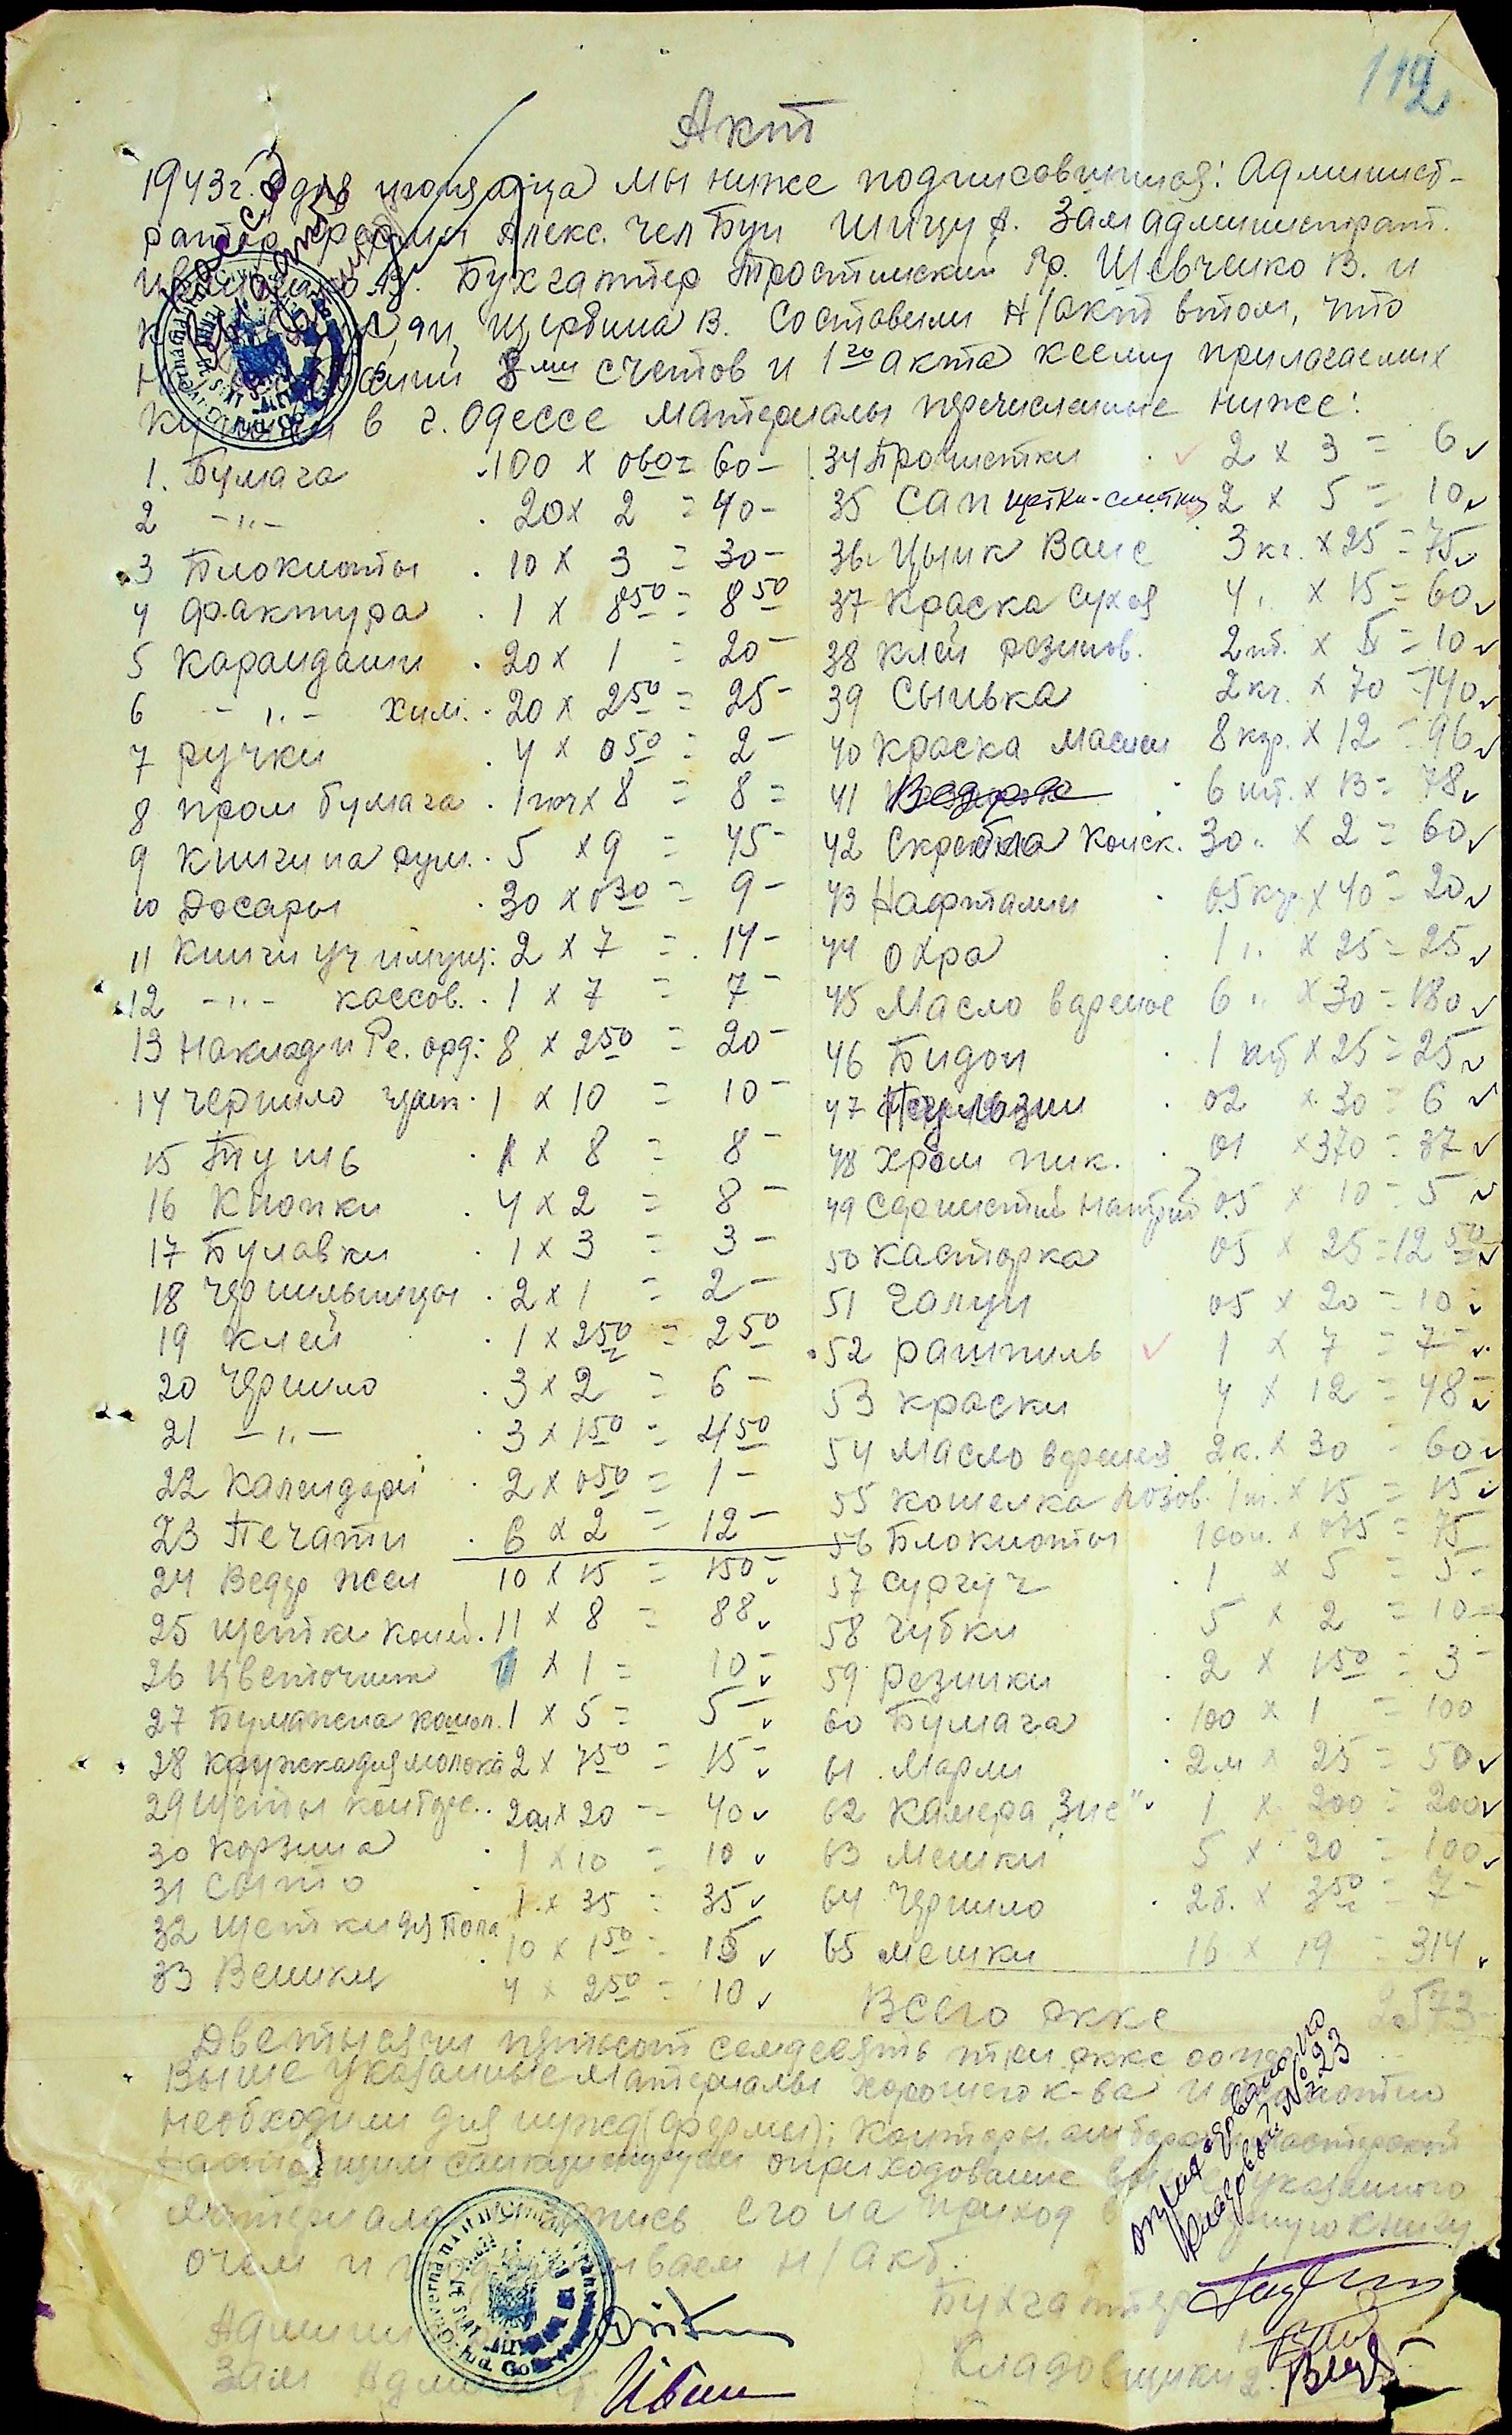 112
Акт
1943г. дня июня м-ца мы ниже подписавшиеся: Админист-
ратор фермы Алекс. чел Бун Шицу А. Зам администрат.
Бухгалтер Тростинский Гр. Шевченко В. и
Щербина В. Составили н/акт втом, что
8ми счетов и 1го акта ксему прилагаемых
в г. Одессе материалы перечисленные ниже:
1. Бумага 100 x 060 = 60-
2 -"- 20 x 2 = 40-
3 Блокноты 10 x 3 = 30-
4 фактура 1 x 850 = 850
5 Карандаши 20 x 1 = 20-
6 -"- хим. 20 x 250 = 25-
7 ручки 4 x 050 = 2-
8 пром бумага 1 x 8 = 8=
9 Книги на рум. 5 x 9 = 45-
10 Досары 30 x 030 = 9-
11 Книги уч имущ: 2 x 7 = 14-
12 -"- кассов. 1 x 7 = 7-
13 Наклад и Ре. орд: 8 x 250 = 20-
14 чернило 1 x 10 = 10-
15 Тушь 1 x 8 = 8-
16 Кнопки 4 x 2 = 8-
17 Булавки 1 x 3 = 3-
18 Чернильницы 2 x 1 = 2-
19 Клей 1 x 250 = 250
20 Чернило 3 x 2 = 6-
21 -"- 3 x 150 = 450
22 Календари 2 x 050 = 1-
23 Печати 6 x 2 = 12-
24 Ведер жел 10 x 15 = 150-
25 щетки 11 x 8 = 88
26 Цветочник x 1 = 10-
27 Бумажена 1 x 5 = 5-
28 кружка для молока 2 x 750 = 15-
29 Щеты контор. 2 x 20 = 40
30 Корзина 1 x 10 = 10
31 Сыто 1 x 35 = 35
32 щетки для Пола 10 x 150 = 15
33 Веники 4 x 250 = 10
34 Прочистки 2 x 3 = 6
35 Сап щетки-сметки 2 x 5 = 10
36 Цынк Ване 3 кг. x 25 = 75
37 Краска сухая 4 " x 15 = 60
38 Клей резинов. 2 шт. x 5 = 10
39 Сынька 2 кг. x 70 = 140
40 Краска маслен 8 кгр. x 12 = 96
41 6 шт. x 13 = 78
42 Скребла Конск. 30 " x 2 = 60
43 Нафталин 05 кгр. x 40 = 20
44 охра 1 " x 25 = 25
45 Масло вареное 6 " x 30 = 180
46 Бидон 1 шт x 25 = 25
47 02 x 30 = 6
48 хром пик. 01 x 370 = 37
49 Сернистый натрий 05 x 10 = 5
50 касторка 05 x 25 = 1250
51 Галун 05 x 20 = 10
52 рашпиль 1 x 7 = 7-
53 краски 4 x 12 = 48-
54 Масло вареное 2 к. x 30 = 60
55 кошелка лозов. 1 ш. x 15 = 15
56 Блокноты 100 x 075 = 75
57 сургуч 1 x 5 = 5-
58 Губки 5 x 2 = 10-
59 Резинки 2 x 150 = 3-
60 Бумага 100 x 1 = 100
61 Марли 2 м x 25 = 50
62 Камера "Зис" 1 x 200 = 200
63 Мешки 5 x 20 = 100
64 Чернило 2 б. x 350 = 7-
65 мешки 16 x 19 = 314
Всего ркке 2573-
Две тысячи пятьсот семдесять три ркке
Выше указанные материалы хорошего к-ва и
необходими для нужд (фермы); Конторы, мастерской
Настоящим санкционируем оприходование выше указанного
материала запись его на приход книгу
очем и подписываем н/Акт.
оприходовано по
кладовой № 23
Бухгалтер
Админи
Зам Админист.
Кладовщики
2.